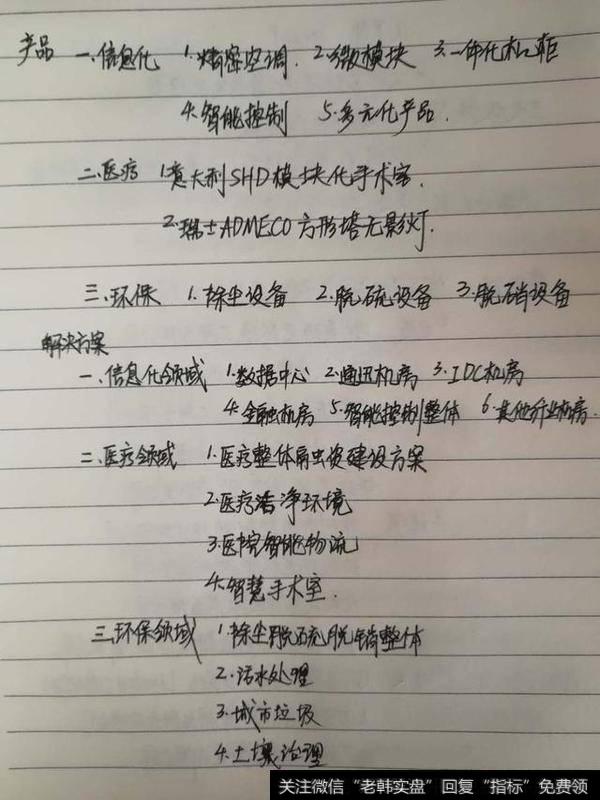 产品 一.信息化 1.精密空调. 2.微模块 3.一体化机柜
4.智能控制 5.多元化产品.
二.医疗 1.意大利SHD模块化手术室.
2.瑞士ADMECO方形塔无影灯.
三.环保 1.除尘设备 2.脱硫设备 3.脱硝设备
解决方案
一.信息化领域 1.数据中心 2.通迅机房 3.IDC机房
4.金融机房 5.智能控制整体 6.其他行业机房.
二.医疗领域 1.医疗整体建设方案
2.医疗洁净环境
3.医院智能物流
4.智慧手术室.
三.环保领域 1.除尘脱硫脱硝整体
2.污水处理
3.城市垃圾
4.土壤治理
关注微信“老韩实盘”回复“指标”免费领